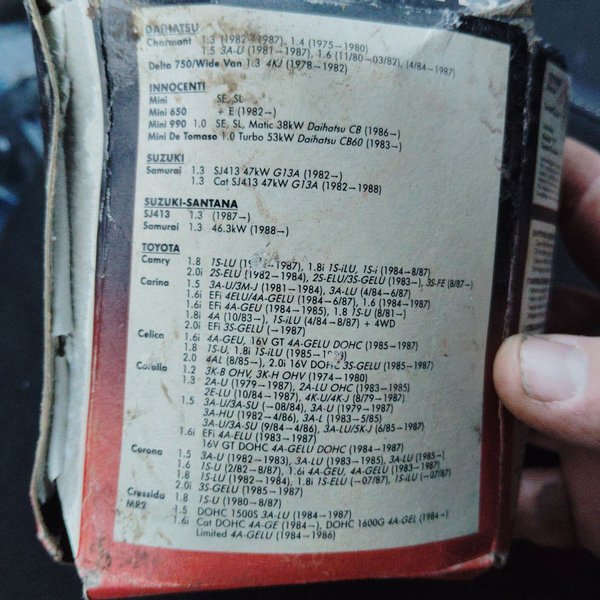 DAIHATSU
Charmant 1.3 (1982–1987), 1.4 (1975–1980)
1.5 3A-U (1981–1987), 1.6 (11/80–03/82), (4/84–1987)
Delta 750/Wide Van 1.3 4KJ (1978–1982)
INNOCENTI
Mini SE, SL
Mini 650 + E (1982→)
Mini 990 1.0 SE, SL, Matic 38kW Daihatsu CB (1986→)
Mini De Tomaso 1.0 Turbo 53kW Daihatsu CB60 (1983→)
SUZUKI
Samurai 1.3 SJ413 47kW G13A (1982→)
1.3 Cat SJ413 47kW G13A (1982–1988)
SUZUKI-SANTANA
SJ413 1.3 (1987→)
Samurai 1.3 46.3kW (1988→)
TOYOTA
Camry 1.8 1S-LU 1987), 1.8i 1S-iLU, 1S-i (1984–8/87)
2.0i 2S-ELU (1982–1984), 2S-ELU/3S-GELU (1983→), 3S-FE (8/87→)
Carina 1.5 3A-U/3M-J (1981–1984), 3A-LU (4/84–6/87)
1.6i EFi 4ELU/4A-GELU (1984–6/87), 1.6 (1984–1987)
1.6i EFi 4A-GEU (1984–1985), 1.8 1S-U (8/81→)
1.8i 4A (10/83→), 1S-iLU (4/84–8/87) + 4WD
2.0i EFi 3S-GELU (→1987)
Celica 1.6i 4A-GEU, 16V GT 4A-GELU DOHC (1985–1987)
1.8 1S-U, 1.8i 1S-iLU (1985–
2.0 4AL (8/85→), 2.0i 16V DOHC 3S-GELU (1985–1987)
Corolla 1.2 3K-B OHV, 3K-H OHV (1974–1980)
1.3 2A-U (1979–1987), 2A-LU OHC (1983–1985)
2E-LU (10/84–1987), 4K-U/4K-J (8/79–1987)
1.5 3A-U/3A-SU (→08/84), 3A-U (1979–1987)
3A-HU (1982–4/86), 3A-L (1983–5/85)
3A-U/3A-SU (9/84–4/86), 3A-LU/5K-J (6/85–1987)
1.6i EFi 4A-ELU (1983–1987)
16V GT DOHC 4A-GELU DOHC (1984–1987)
Corona 1.5 3A-U (1982–1983), 3A-LU (1983–1985), 3A-LU (1985→)
1.6 1S-U (2/82–8/87), 1.6i 4A-GEU, 4A-GELU (1983–1987)
1.8 1S-LU (1982–1984), 1.8i 1S-ELU (→07/87), 1S-iLU (→07/87)
2.0i 3S-GELU (1985–1987)
Cressida 1.8 1S-U (1980–8/87)
MR2 1.5 DOHC 1500S 3A-LU (1984–1987)
1.6i Cat DOHC 4A-GE (1984→), DOHC 1600G 4A-GEL (1984→)
Limited 4A-GELU (1984–1986)